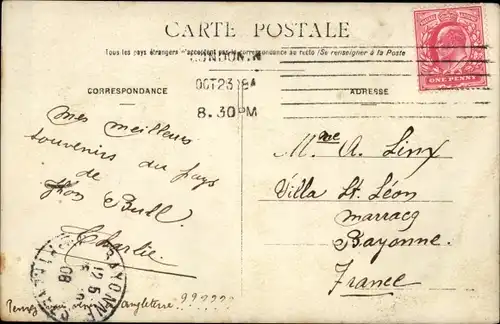 CARTE POSTALE
Tous les pays étrangers n'acceptent pas la correspondance au recto (Se renseigner à la Poste
LONDON.N
OCT 23
8.30PM
ONE PENNY
CORRESPONDANCE
ADRESSE
mes meilleurs
souvenirs du pays
de
Jhon Bull
Charlie
Mme A. Linx
Villa St. Léon
marracq
Bayonne.
France
BAYONNE
12 5
08
Pensez venir Angleterre ??????